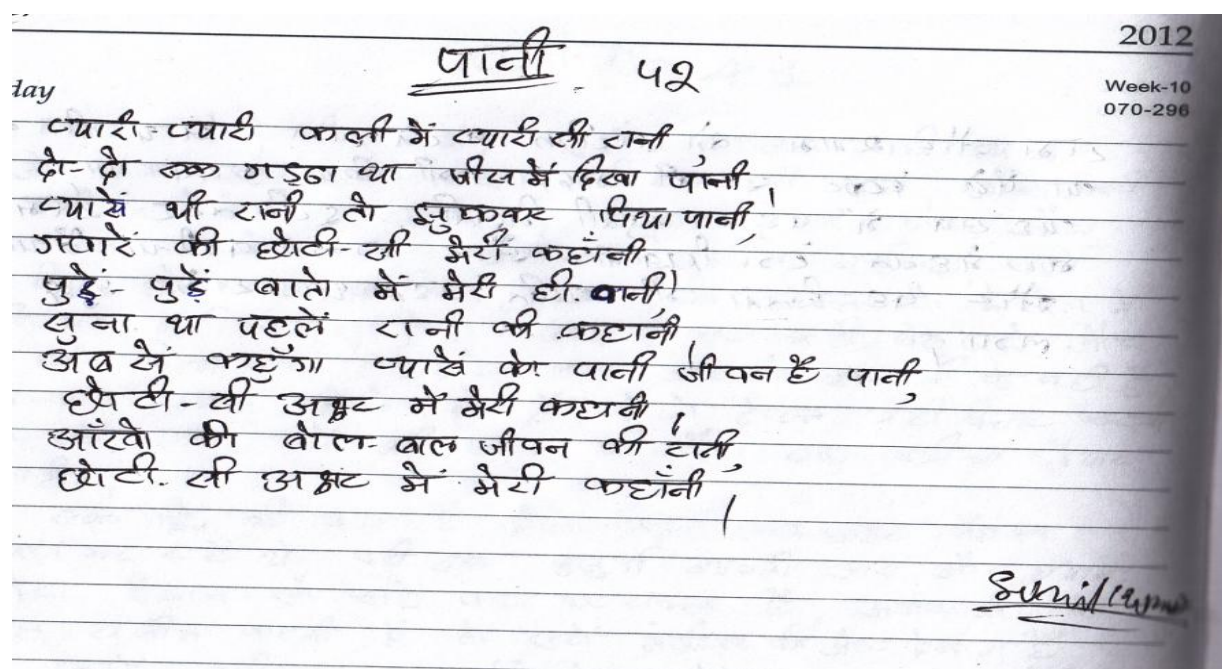 2012
पानी ५२
day
Week-10
070-296
प्यारी प्यारी कली में प्यारी सी रानी,
दो-दो रुक गड्ढा था बीच में दिखा पांनी।
प्यासें थी रानी तो झुककर पिया पानी,
गवारें की छोटी-सी मेरी कहाँनी।
पुड़ें-पुड़ें बातो में मेरी ही वानी,
सुना था पहलें रानी की कहानी।
अब सें कहुँगा प्यासें को पानी जीवन है पानी,
छोटी-सी अक्षट में मेरी कहानी।
आँखो की बोल-बाल जीवन की रानी,
छोटी-सी अक्षट में मेरी कहाँनी।
Sunil Kumar